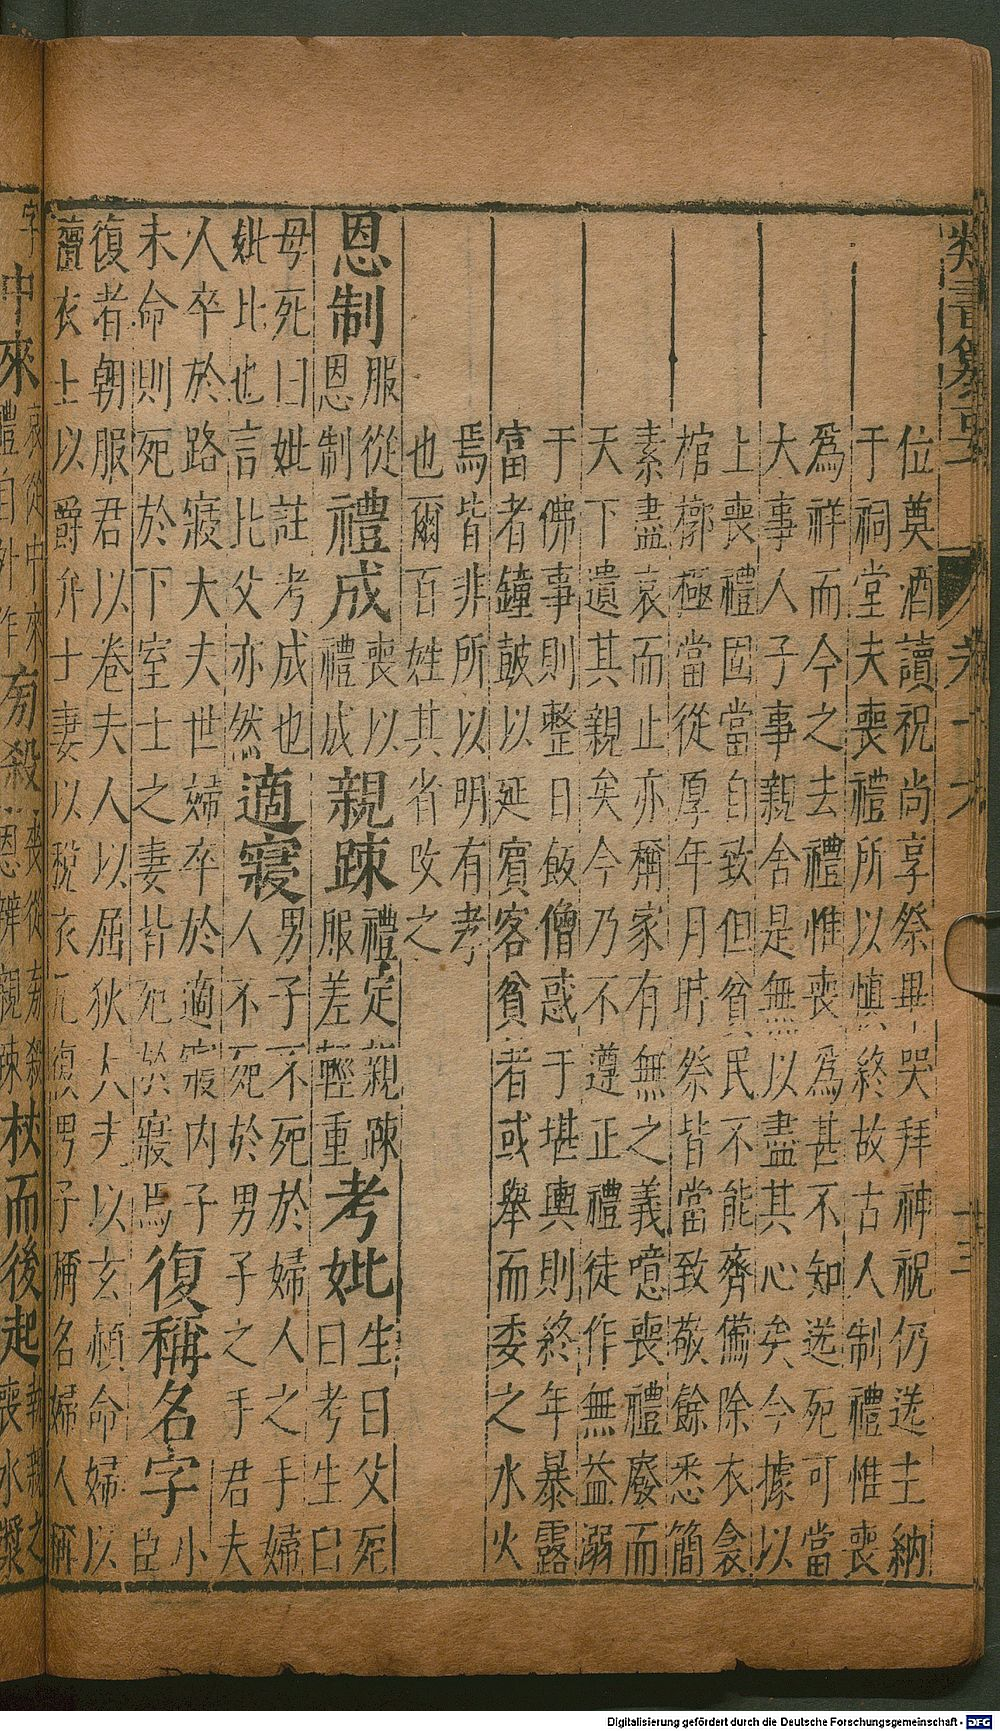 位奠酒讀祝尚享祭畢哭拜神祝仍送主納
于祠堂夫喪禮所以慎終故古人制禮惟喪
為祥而今之去禮惟喪為甚不知送死可當
大事人子事親舍是無以盡其心矣今據以
上喪禮固當自致但貧民不能齊備除衣衾
棺槨極當從厚年月時祭皆當致敬餘悉簡
素盡哀而止亦稱家有無之義噫喪禮廢而
天下遺其親矣今乃不遵正禮徒作無益溺
于佛事則整日飯僧惑于堪輿則終年暴露
富者鐘皷以延賓客貧者或舉而委之水火
焉皆非所以明有孝
也爾百姓其省改之
恩制 服從恩制 禮成 喪以禮成 親踈 禮定親踈服差輕重 考妣 生曰父死曰考生曰
母死曰妣註考成也妣比也言比父亦然 適寢 男子不死於婦人之手婦人不死於男子之手君夫
人卒於路寢大夫世婦卒於適寢内子未命則死於下室士之妻皆死於寢焉 復稱名字 小臣
復者朝服君以卷夫人以屈狄大夫以玄頳命婦以
襢衣士以爵弁士妻以稅衣凡復男子稱名婦人稱
字 中來 哀從中來禮自外作
杖而後起
類書纂要
卷十六
十三
Digitalisierung gefördert durch die Deutsche Forschungsgemeinschaft - DFG